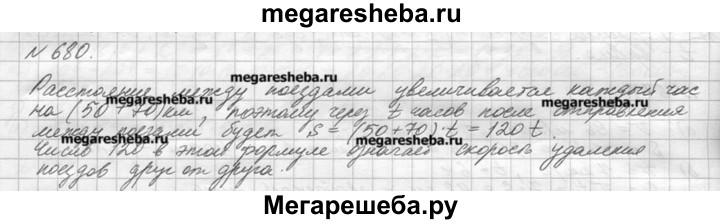 megaresheba.ru
№ 680.
megaresheba.ru
Расстояние между поездами увеличивается каждый час
на (50+70) км, поэтому через t часов после отправления
megaresheba.ru megaresheba.ru
между поездами будет S = (50+70)·t = 120t.
megaresheba.ru megaresheba.ru
Число 120 в этой формуле означает скорость удаления
поездов друг от друга.
megaresheba.ru
Мегарешеба.ру